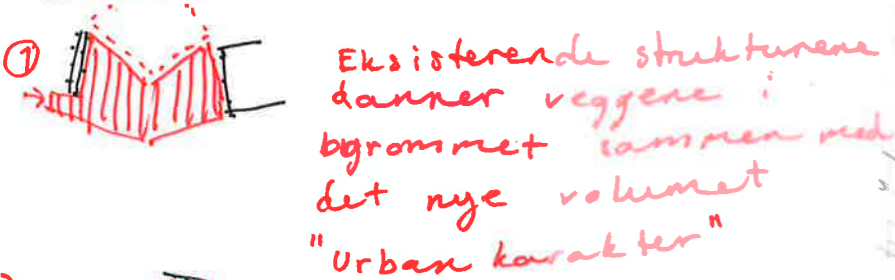 1
Eksisterende strukturene
danner veggene i
byrommet sammen med
det nye volumet
"Urban karakter"